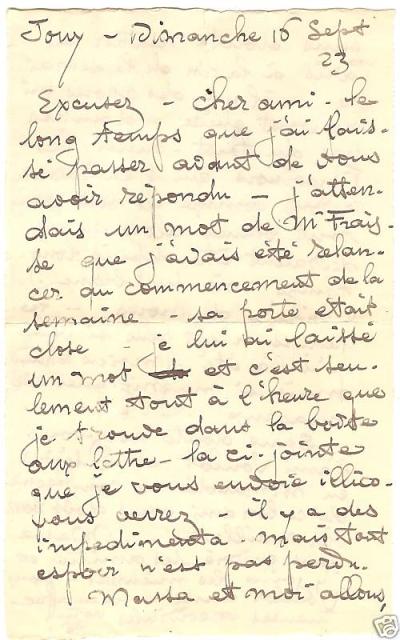 Jouy - Dimanche 16 Sept
23
Excusez - cher ami - le
long temps que j'ai lais-
sé passer avant de vous
avoir répondu - j'atten-
dais un mot de Mr Frais-
se que j'avais été relan-
cer au commencement de la
semaine - sa porte était
close - je lui ai laissé
un mot et c'est seu-
lement tout à l'heure que
je trouve dans la boîte
aux lettre - la ci-jointe
que je vous envoie illico -
vous verrez - il y a des
impedimenta - mais tout
espoir n'est pas perdu.
Massa et moi allons,